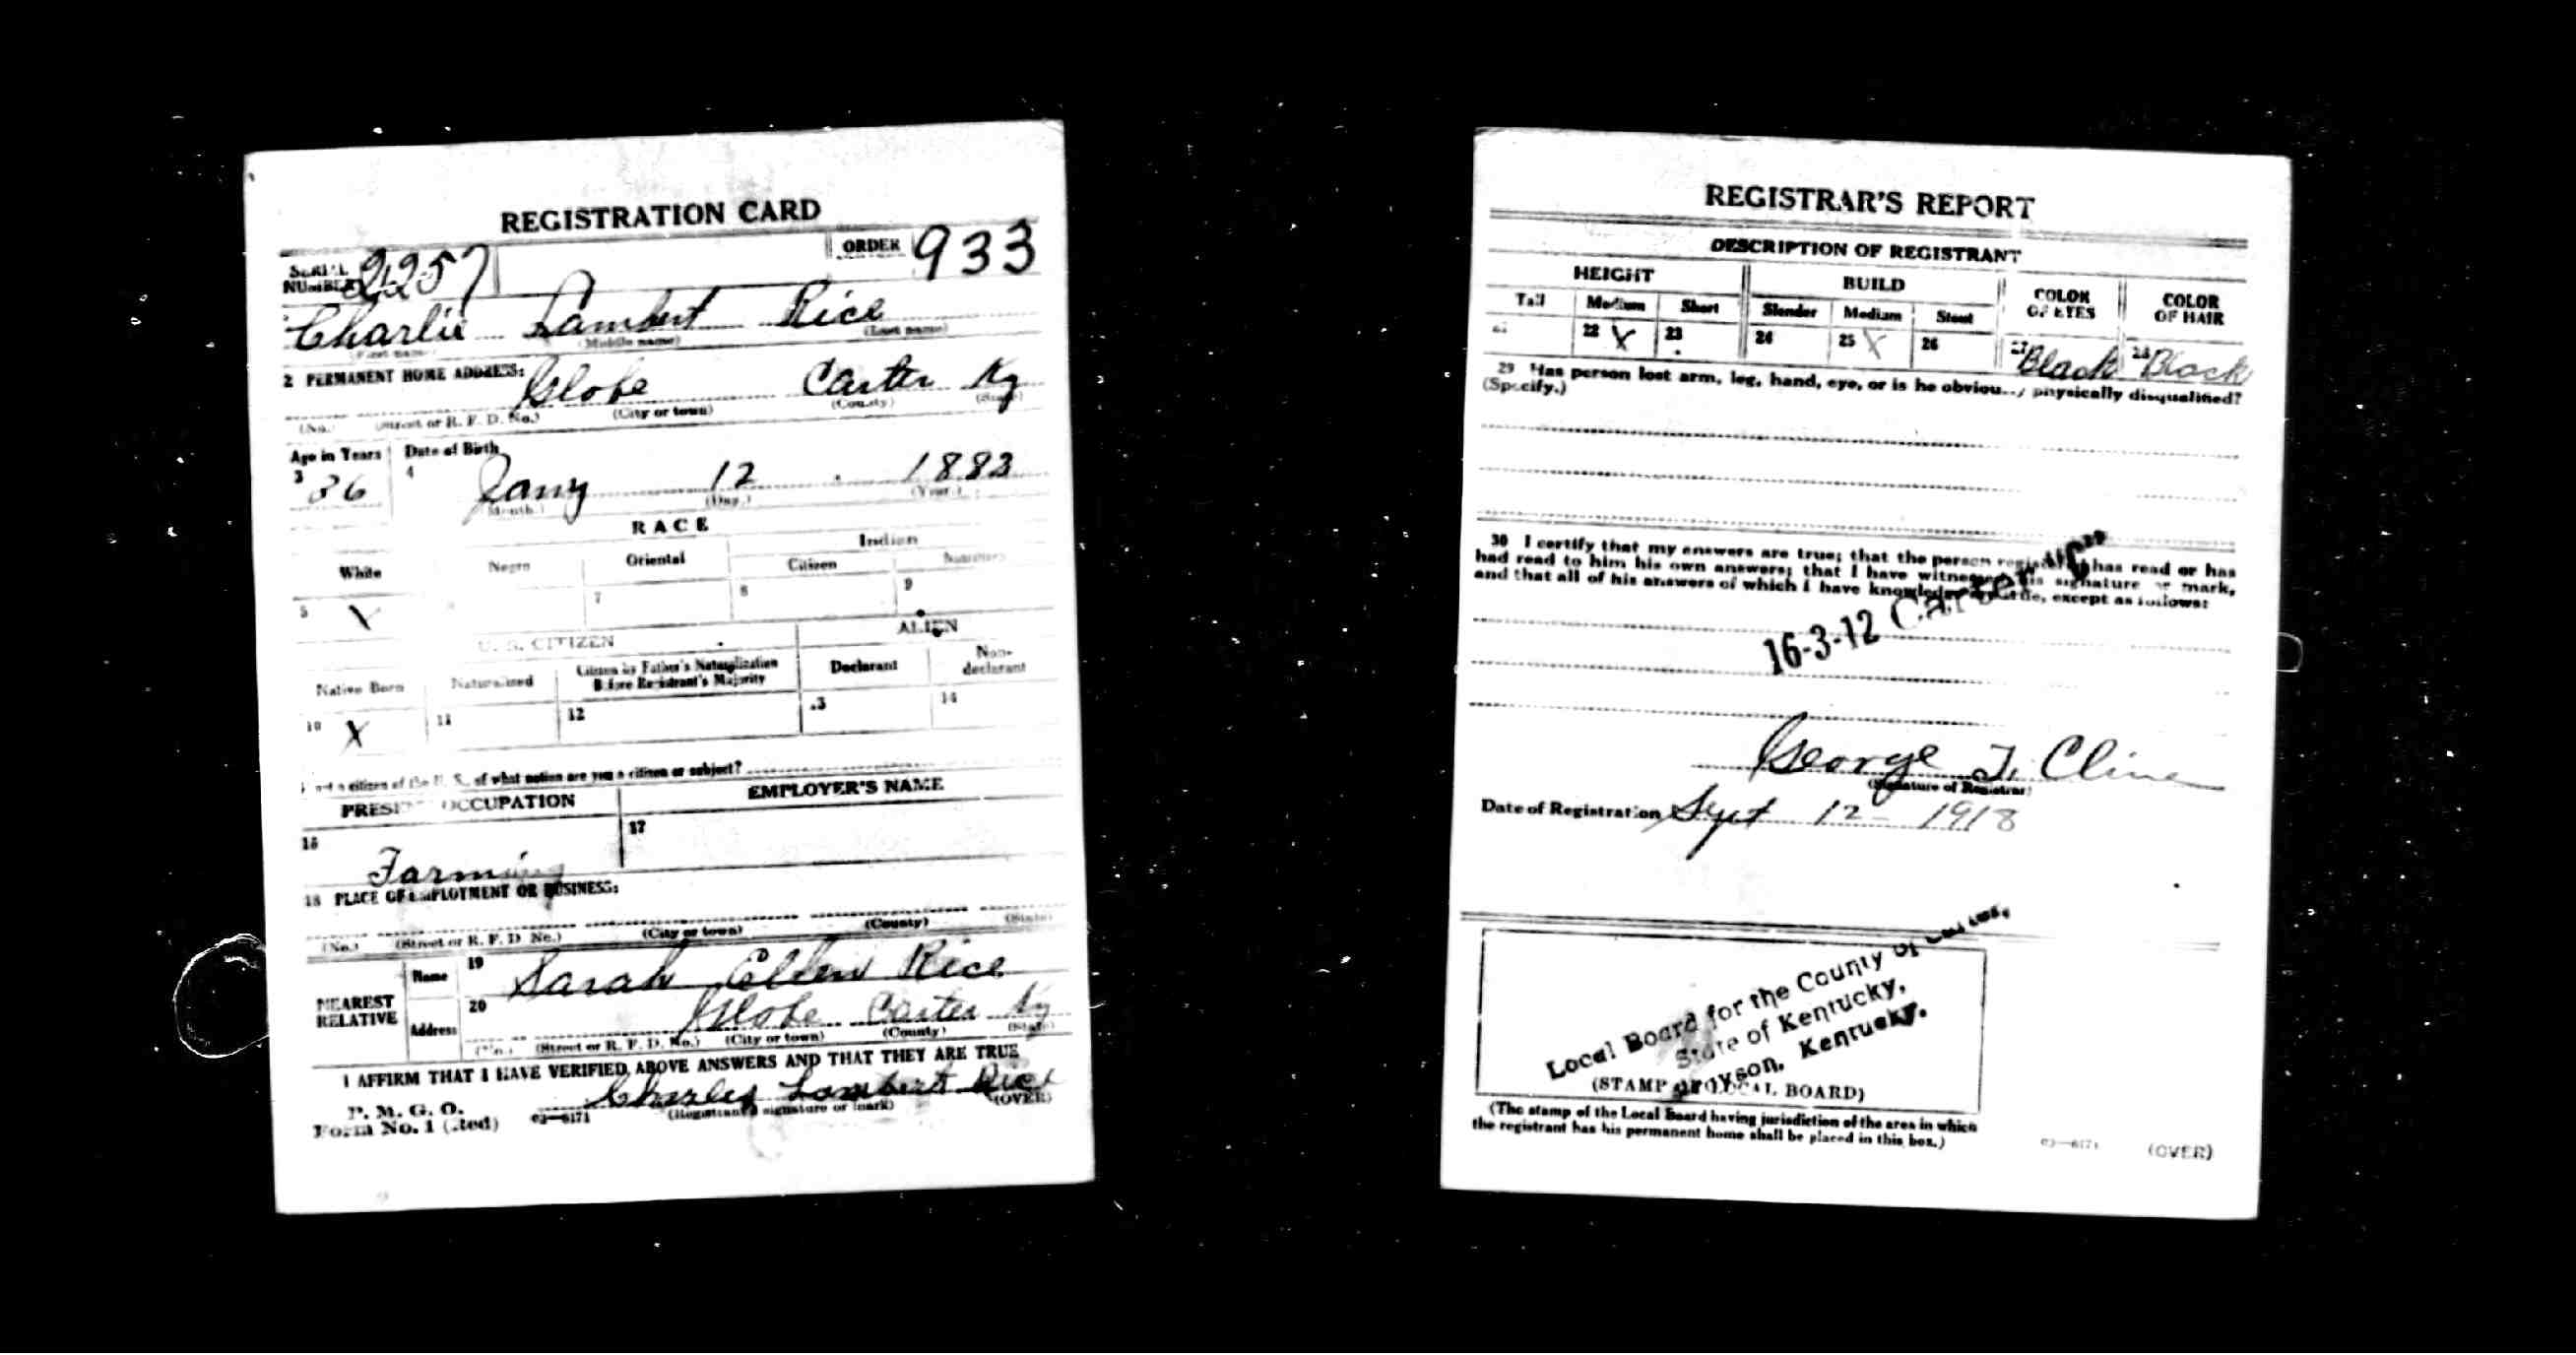 REGISTRATION CARD
SERIAL NUMBER 2257 ORDER 933
Charlie Lambert Rice
(First name) (Middle name) (Last name)
2 PERMANENT HOME ADDRESS:
Globe Carter Ky
(No.) (Street or R. F. D. No.) (City or town) (County) (State)
Age in Years Date of Birth
3 36 4 Jany 12 1883
(Month.) (Day.) (Year.)
RACE
White Negro Oriental Indian
Citizen
5 X 7 8 9
U. S. CITIZEN ALIEN
Native Born Naturalized Citizen by Father's Naturalization Before Registrant's Majority Declarant Non-declarant
10 X 11 12 13 14
not a citizen of the U. S., of what nation are you a citizen or subject?
PRESENT OCCUPATION EMPLOYER'S NAME
16 Farming 17
18 PLACE OF EMPLOYMENT OR BUSINESS:
(No.) (Street or R. F. D. No.) (City or town) (County) (State)
NEAREST RELATIVE Name 19 Sarah Ellen Rice
Address 20 Globe Carter Ky
(No.) (Street or R. F. D. No.) (City or town) (County) (State)
I AFFIRM THAT I HAVE VERIFIED ABOVE ANSWERS AND THAT THEY ARE TRUE
P. M. G. O. Charles Lambert Rice
Form No. 1 (Red) 03—6171 (Registrant's signature or mark) (OVER)
REGISTRAR'S REPORT
DESCRIPTION OF REGISTRANT
HEIGHT BUILD COLOR OF EYES COLOR OF HAIR
Tall Medium Short Slender Medium Stout
21 22 X 23 24 25 X 26 27 Black 28 Black
29 Has person lost arm, leg, hand, eye, or is he obviously physically disqualified?
(Specify.)
30 I certify that my answers are true; that the person registered has read or has
had read to him his own answers; that I have witnessed his signature or mark,
and that all of his answers of which I have knowledge are true, except as follows:
16-3-12 Carter "C"
George T. Cline
(Signature of Registrar)
Date of Registration Sept 12 - 1918
Local Board for the County of Carter,
State of Kentucky,
Grayson, Kentucky.
(STAMP OF LOCAL BOARD)
(The stamp of the Local Board having jurisdiction of the area in which
the registrant has his permanent home shall be placed in this box.)
03—6171 (OVER)